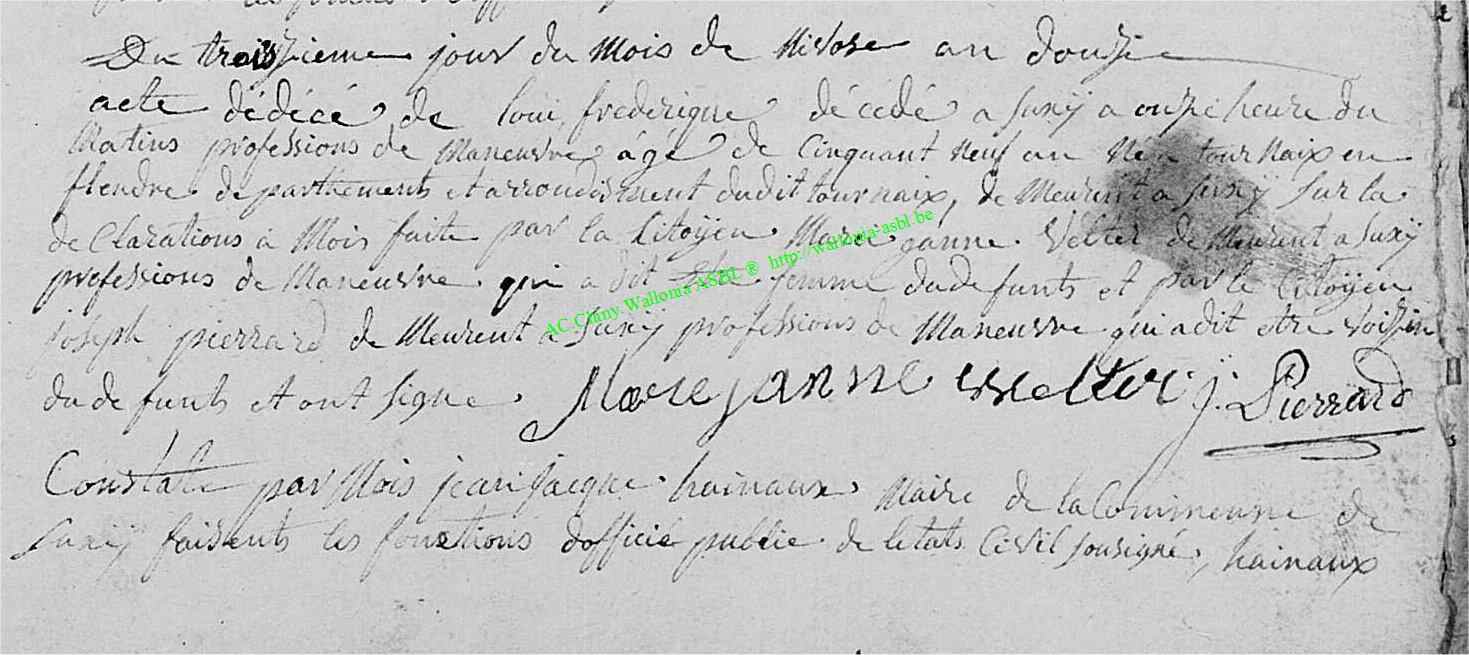 Du troiszieme jour du Mois de Nivose an douzie
acte dédécé de loui frederique décedé a Suxÿ a onze heure du
Matins professions de Maneuvre âgé de Cinquant Neuf an Né a tournaix en
flendre departhements et arroudisment dudit tournaix, de Meurent a Suxÿ Sur la
de Clarations a Mois faite par la Citoÿen Marie janne Velter de Meurent a Suxÿ
professions de Maneuvre qui a dit femme du defunts et par le Citoÿen
joseph pierrard de Meurent a Suxÿ professions de Maneuvre qui a dit etre Voiszin
du de funts et ont Signe. Marie janne Welter J. Pierrard
Constate par Mois jean jacque hainaux Maire de la Commenne de
Suxÿ faisents les fonctions dofficié public de letats Civil Sousigné, hainaux
AC Chiny Wallonia ASBL ® http://wallonia-asbl.be